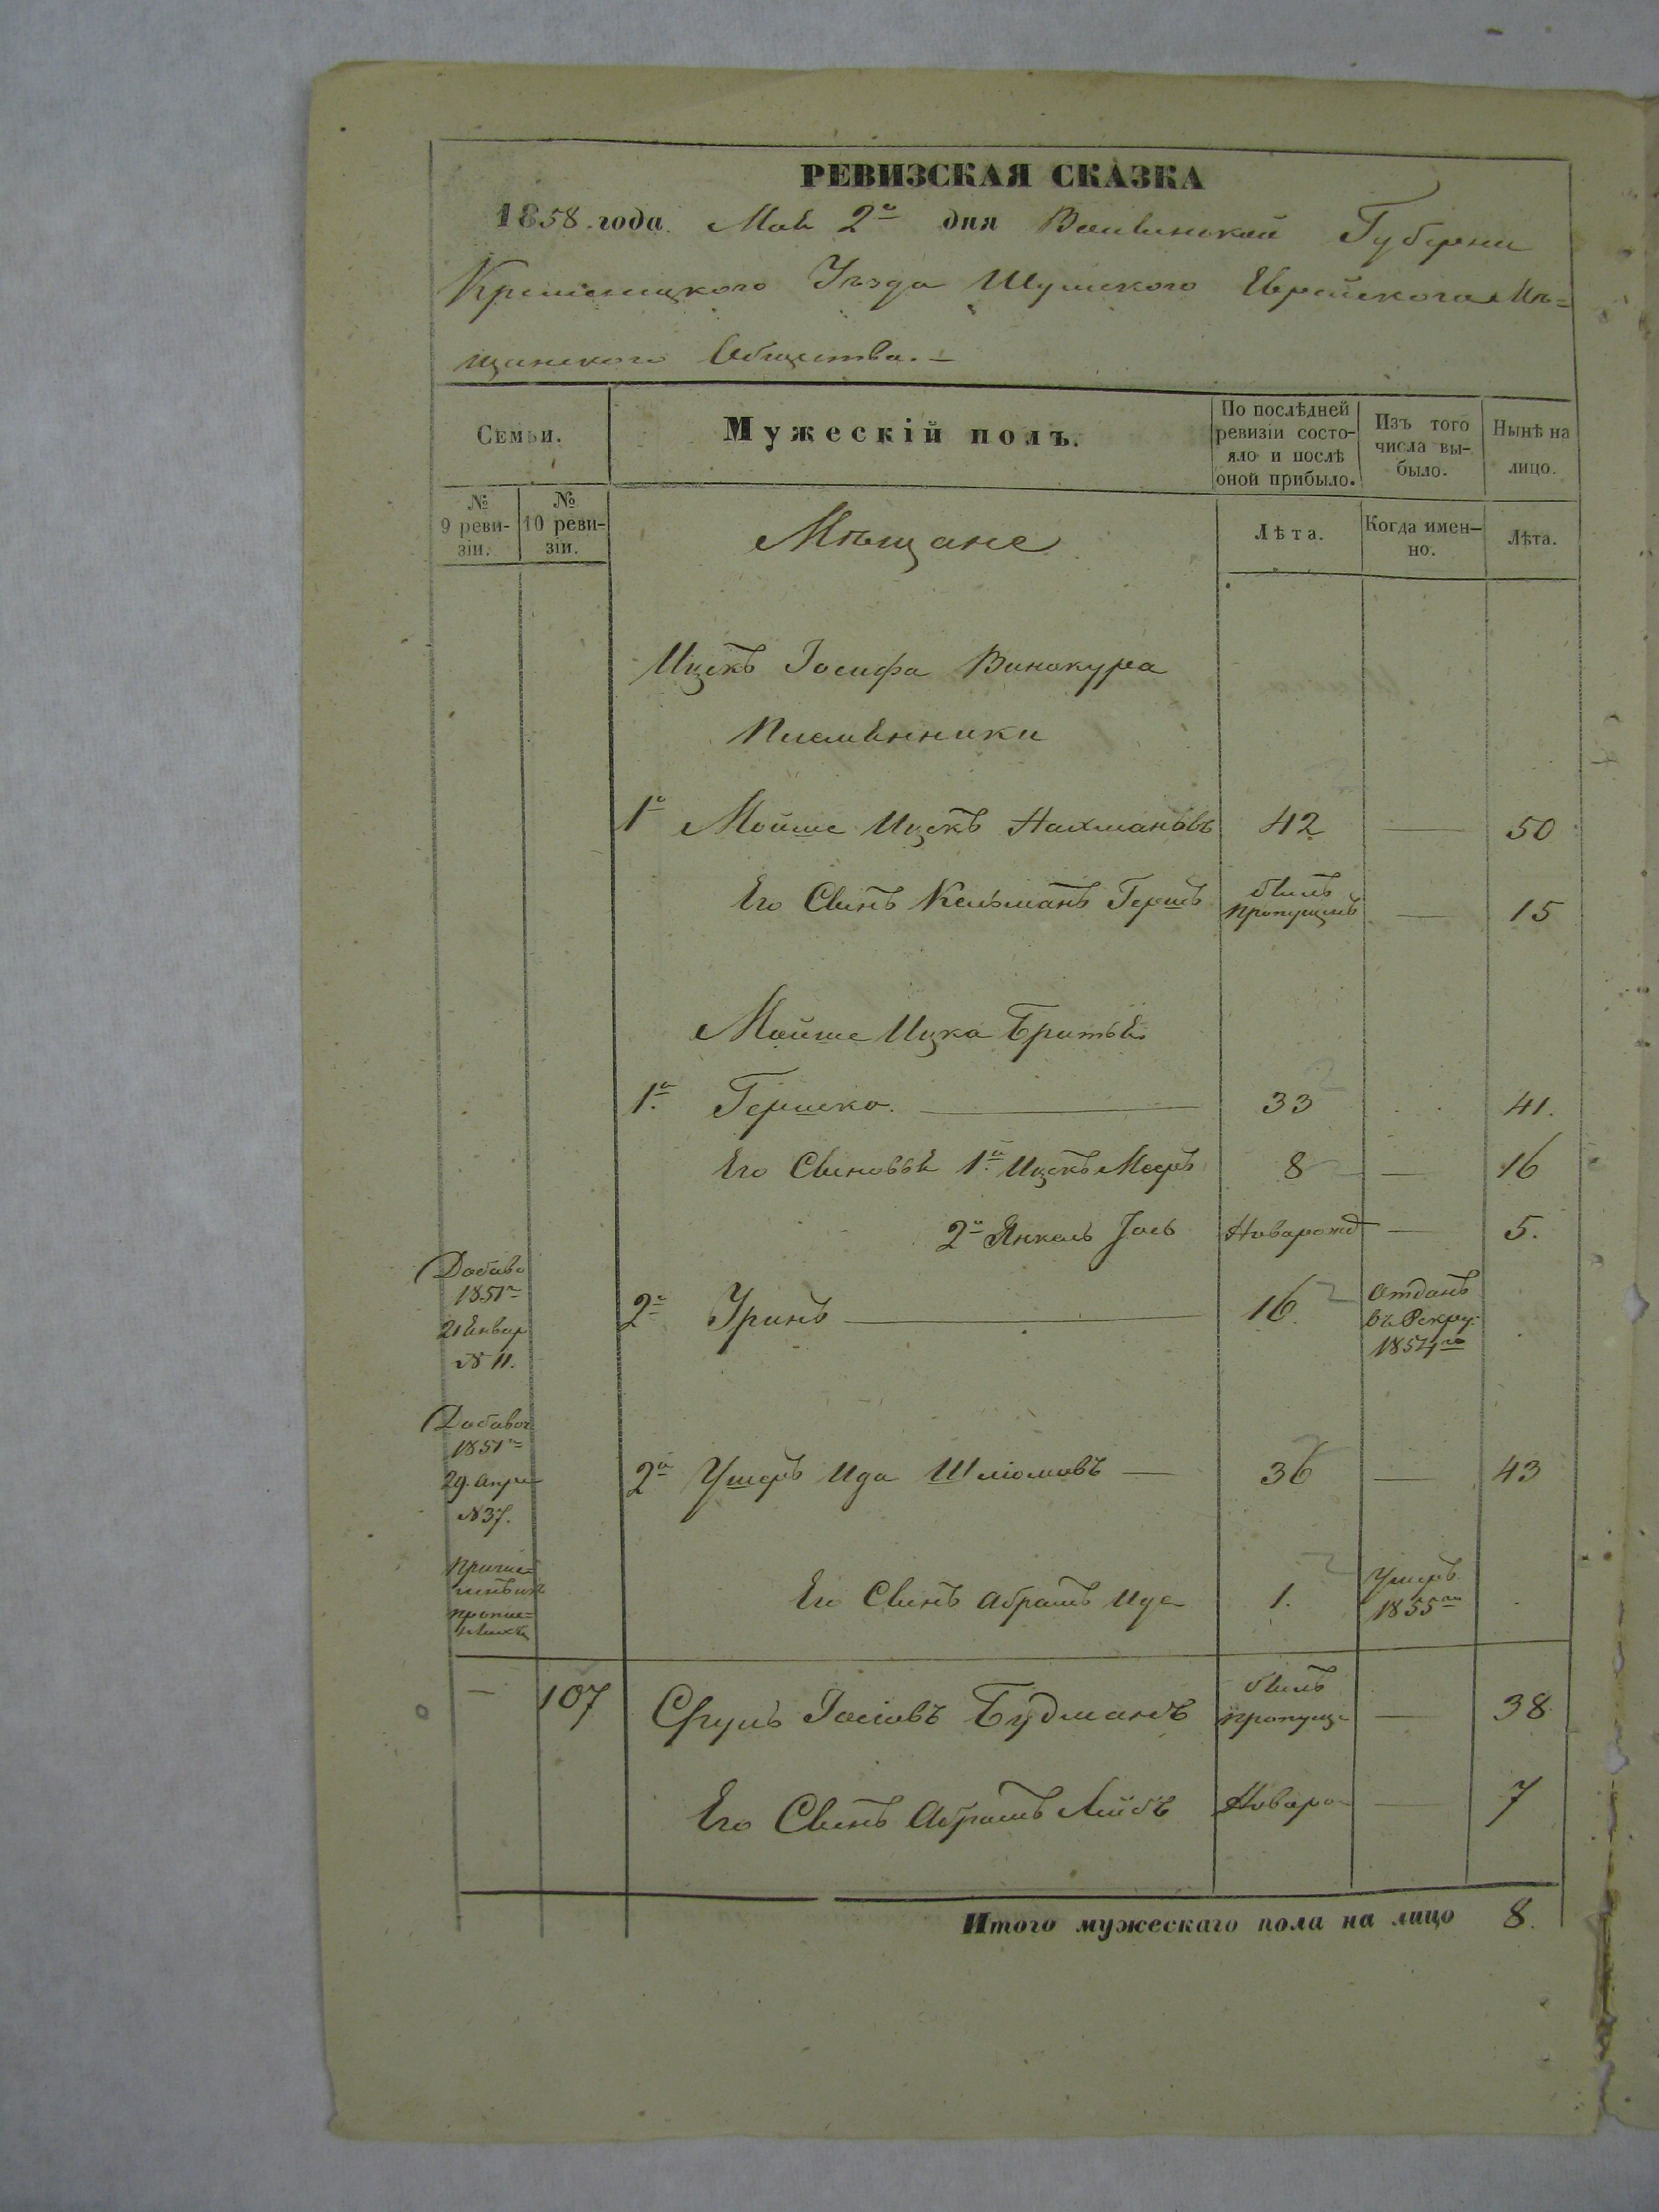 РЕВИЗСКАЯ СКАЗКА
1858 года Мая 2го дня Волынской Губернии
Кременецкого Уезда Шумского Еврейского Мѣ=
щанского Общества.–
Семьи.
Мужескій полъ.
По послѣдней ревизіи состо-яло и послѣ оной прибыло.
Изъ того числа вы-было.
Нынѣ на лицо.
№ 9 реви-зіи.
№ 10 реви-зіи.
Мѣщане
Лѣта.
Когда имен-но.
Лѣта.
Ицекъ Іосифа Винокура
Племянники
1й Мойше Ицекъ Нахмановъ 42 — 50
Его Сынъ Кельманъ Гершъ былъ пропущенъ — 15
Мойше Ицка Братья
1й Гершко. — 33 41.
Его Сыновья 1й Ицекъ Мееръ 8 — 16
2й Янкель Іось Новорожд — 5.
Добаво 1851го 21 Енвар N 11.
2й Уринъ — 16. Отданъ въ Рекру. 1854го
Добавоч 1851го 29. Апре N 37.
2й Ушеръ Ида Шліомовъ — 36 — 43
Его Сынъ Абрамъ Ида 1. Умеръ 1855го
— 107 Сруль Іосіовъ Будманъ былъ пропущ — 38
Его Сынъ Абрамъ Лейбъ Новоро — 7
Итого мужескаго пола на лицо 8.